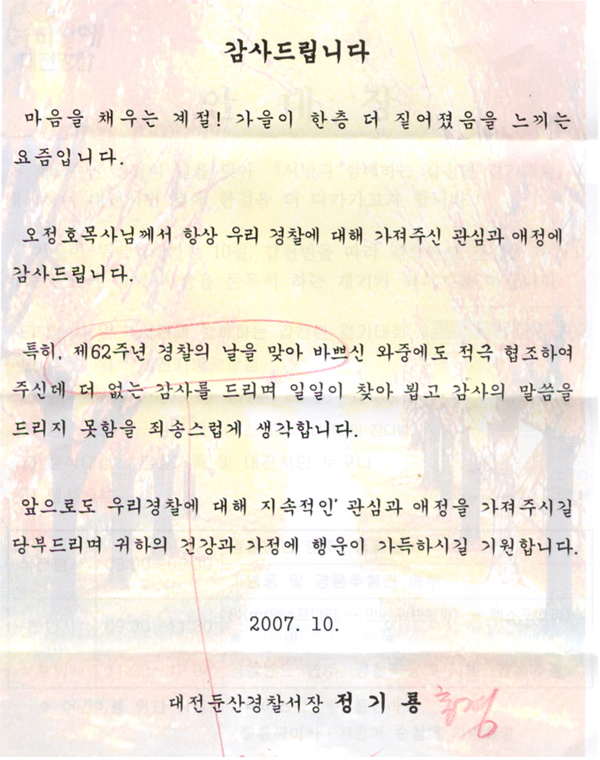 감사드립니다
마음을 채우는 계절! 가을이 한층 더 짙어졌음을 느끼는
요즘입니다.
오정호목사님께서 항상 우리 경찰에 대해 가져주신 관심과 애정에
감사드립니다.
특히, 제62주년 경찰의 날을 맞아 바쁘신 와중에도 적극 협조하여
주신데 더 없는 감사를 드리며 일일이 찾아 뵙고 감사의 말씀을
드리지 못함을 죄송스럽게 생각합니다.
앞으로도 우리경찰에 대해 지속적인' 관심과 애정을 가져주시길
당부드리며 귀하의 건강과 가정에 행운이 가득하시길 기원합니다.
2007. 10.
대전둔산경찰서장 정 기 룡